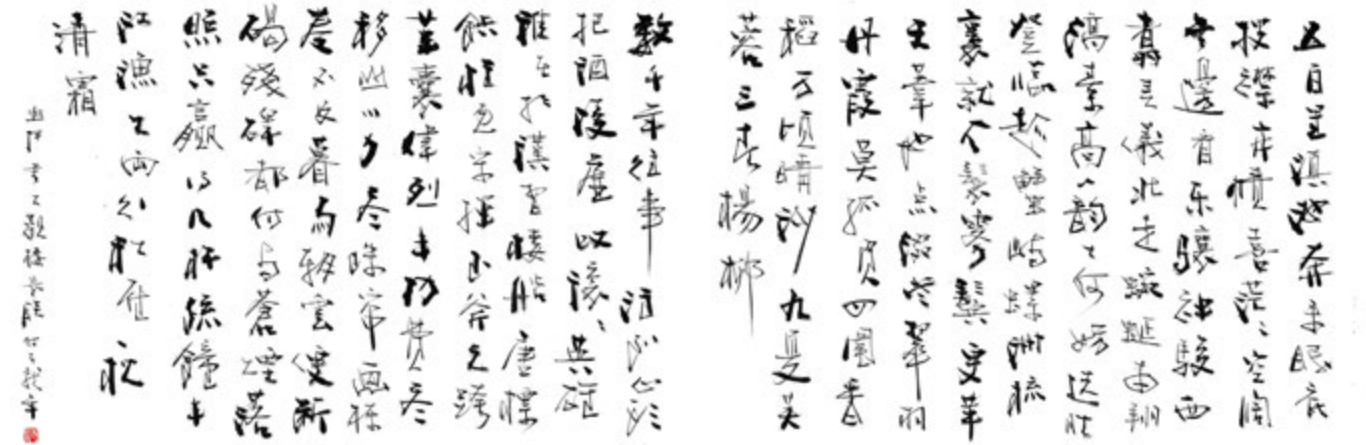 五百里滇池奔来眼底
披襟岸幘喜茫々空阔
无邊看东驤神駿西
翥灵儀北走蜿蜒南翔
縞素高人韵士何妨选胜
登临趁蟹嶼螺洲梳
裹就风鬟雾鬓更苹
天苇地点缀些翠羽
丹霞莫孤负四围香
稻万顷晴沙九夏芙
蓉三春楊柳
數千年往事注到心头
把酒凌虚叹滚々英雄
誰在想漢習楼船唐標
铁柱宋揮玉斧元跨
革囊伟烈丰功费尽
移山心力尽珠帘画栋
卷不及暮雨朝雲便断
碣殘碑都付与蒼煙落
照只赢得几杵疏鐘半
江漁火两行秋雁一枕
清霜
書大觀楼長聯